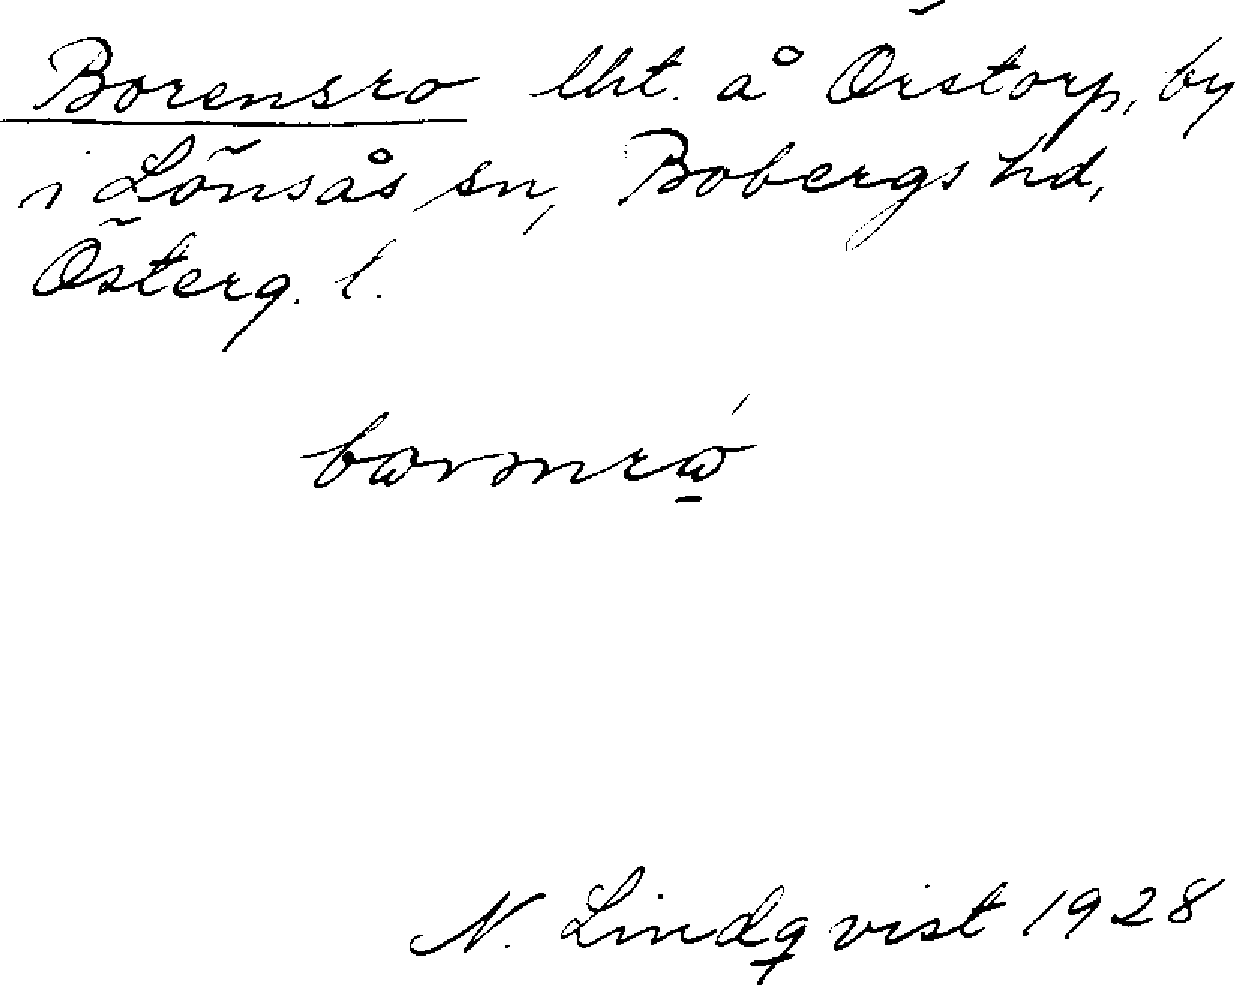 Borensro lht. å Örstorp, by
i Lönsås sn, Bobergs hd,
Österg. l.
N. Lindqvist 1928